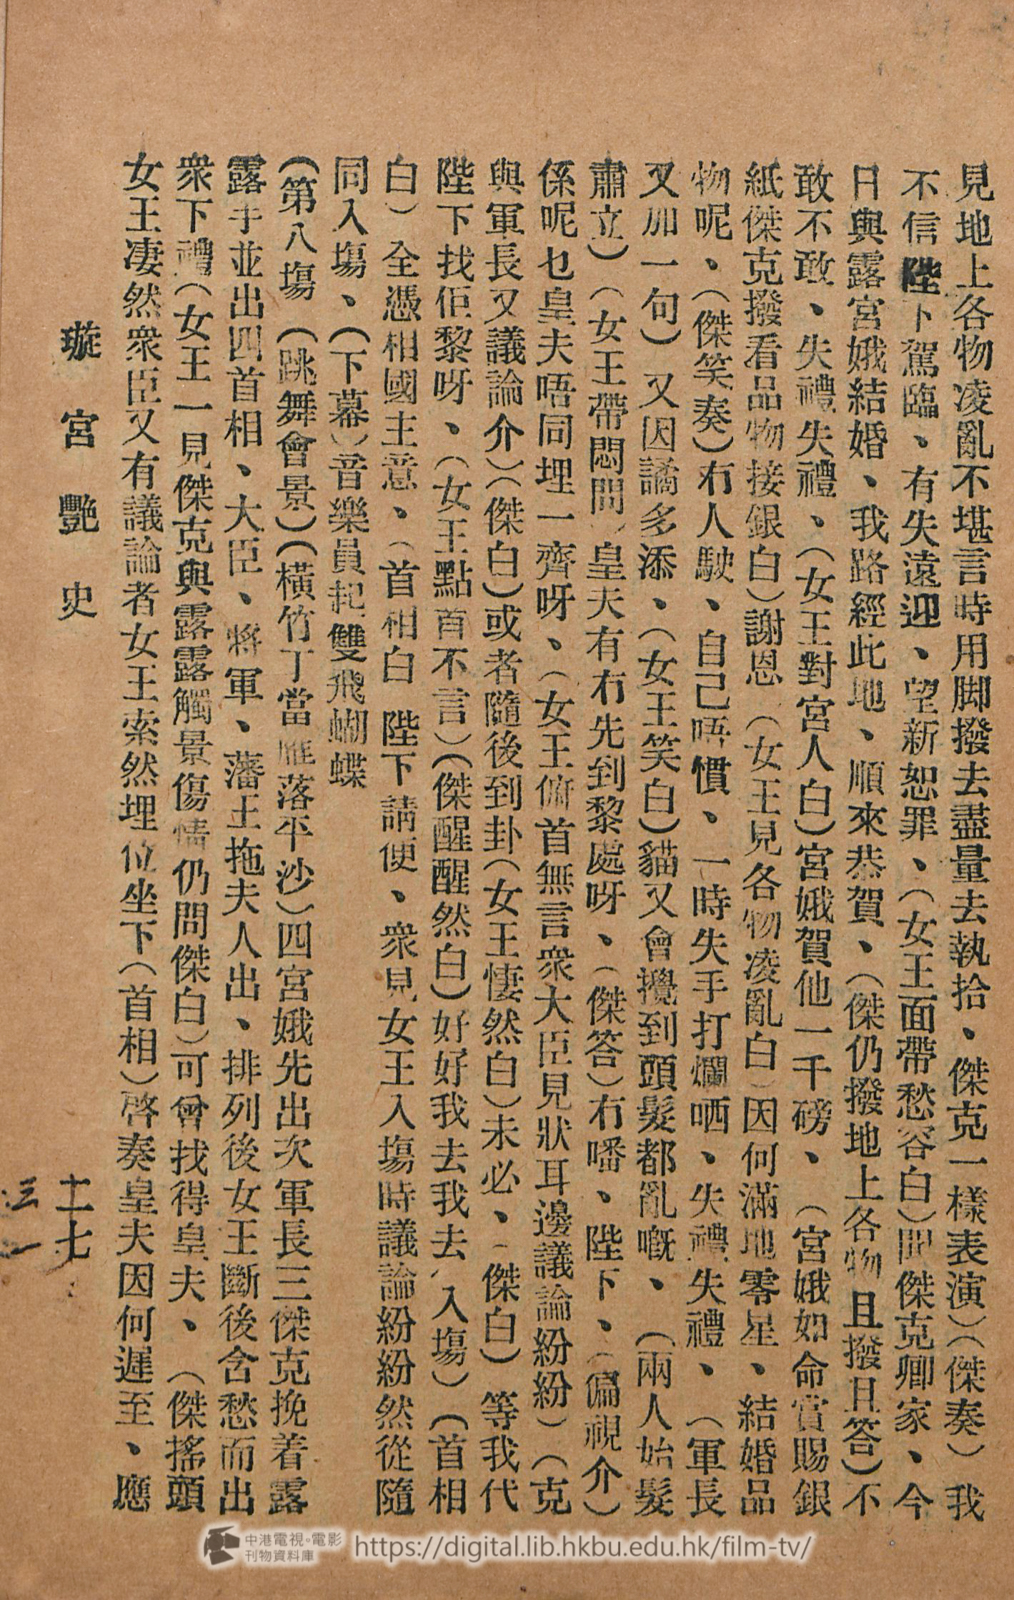 見地上各物凌亂不堪言時用脚撥去盡量去執拾、傑克一樣表演）（傑奏）我
不信陛下駕臨、有失遠迎、望新恕罪、（女王面帶愁容白）問傑克卿家、今
日與露宮娥結婚、我路經此地、順來恭賀、（傑仍撥地上各物且撥且答）不
敢不敢、失禮失禮、（女王對宮人白）宮娥賀他一千磅、（宮娥如命賞賜銀
紙傑克撥看品物接銀白）謝恩（女王見各物凌亂白）因何滿地零星、結婚品
物呢、（傑笑奏）冇人駛、自己唔慣、一時失手打爛哂、失禮失禮、（軍長
又加一句）又因譎多添、（女王笑白）貓又會攪到頭髮都亂嘅、（兩人始髮
肅立）（女王帶悶問）皇夫有冇先到黎處呀、（傑答）冇噃、陛下、（偏視介）
係呢乜皇夫唔同埋一齊呀、（女王俯首無言衆大臣見狀耳邊議論紛紛）（克
與軍長又議論介）（傑白）或者隨後到卦（女王悽然白）未必、（傑白）等我代
陛下找佢黎呀、（女王點首不言）（傑醒醒然白）好好我去我去（入塲）（首相
白）全憑相國主意、（首相白）陛下請便、衆見女王入塲時議論紛紛然從隨
同入塲、（下幕）音樂員起雙飛蝴蝶
（第八塲（跳舞會景）（橫竹丁當雁落平沙）四宮娥先出次軍長三傑克挽着露
露手並出四首相、大臣、將軍、藩王拖夫人出、排列後女王斷後含愁而出
衆下禮（女王一見傑克與露露觸景傷情仍問傑白）可曾找得皇夫、（傑搖頭
女王凄然衆臣又有議論者女王索然埋位坐下（首相）啓奏皇夫因何遲至、應
璇宮艷史
二七
三一
中港電視·電影
刊物資料庫
https://digital.lib.hkbu.edu.hk/film-tv/